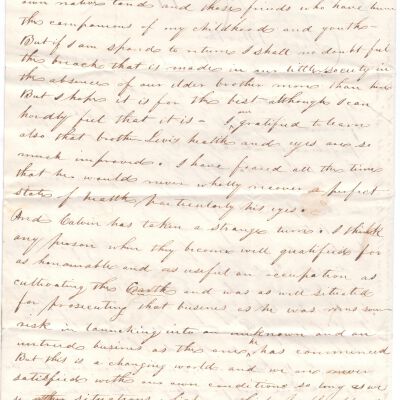 own native land and those friends who have been
the companions of my childhood and youth
But if I am spared to return I shall no doubt feel
the breach that is made in our little society in
the absence of our elder brother more than
But I hope it is for the best although I can
hardly feel that it is - I am gratified to learn
also that brother Levi's health and eyes are so
much improved. I have feared all the time
that he would never wholly recover a perfect
state of health, particularly his eyes.
And Calvin has taken a strange turn. I think
any person when they become well qualified for
as honourable and as useful an occupation as
cultivating the Earth and was as well situated
for prosecuting that business as he was runs some
risk in launching into an unknown and an
untried business as the one he has commenced
But this is a changing world and we are never
satisfied with our own condition so long as we
situations